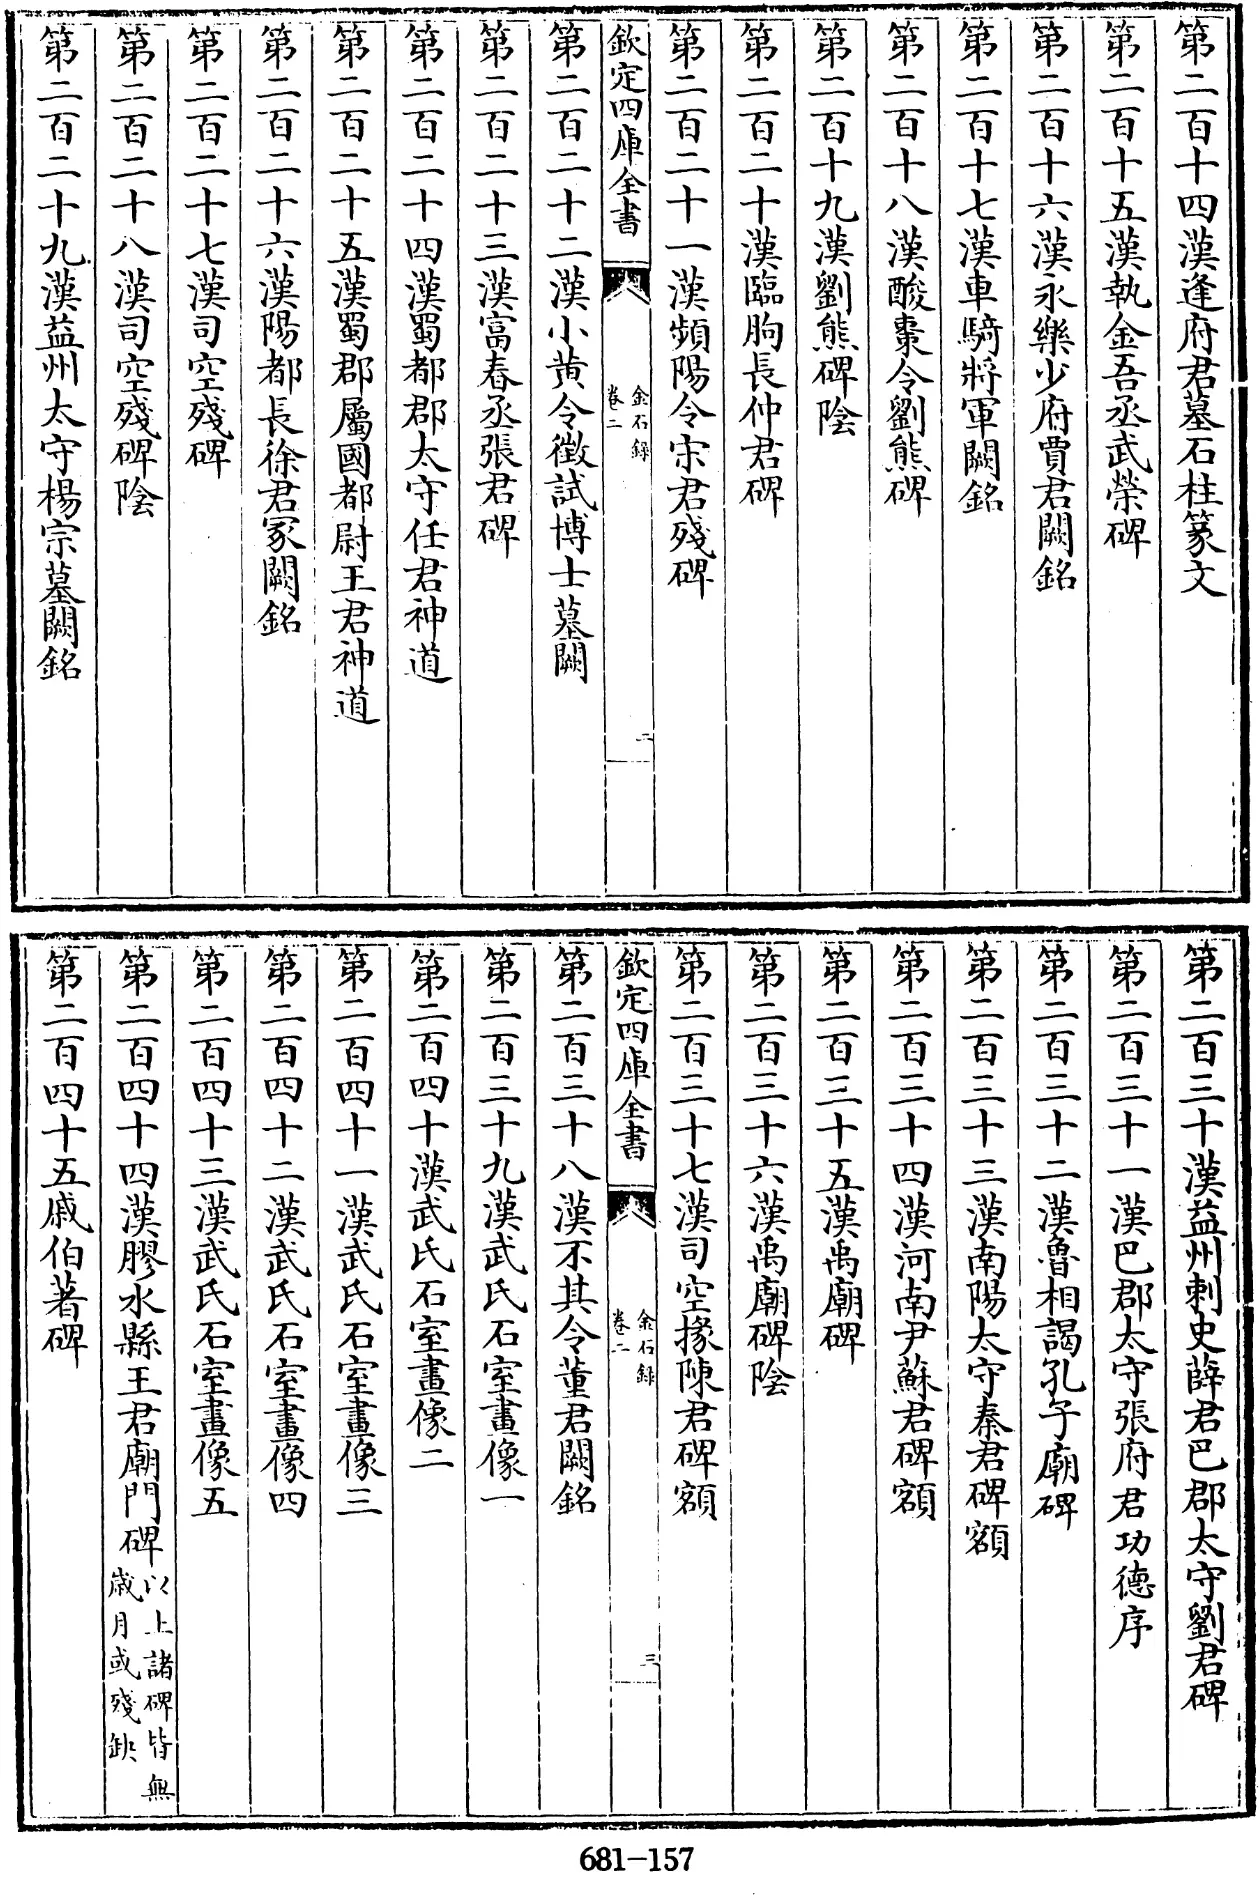 第二百十四漢逢府君墓石柱篆文
第二百十五漢執金吾丞武榮碑
第二百十六漢永樂少府賈君闕銘
第二百十七漢車騎將軍闕銘
第二百十八漢酸棗令劉熊碑
第二百十九漢劉熊碑陰
第二百二十漢臨朐長仲君碑
第二百二十一漢頻陽令宋君殘碑
欽定四庫全書
金石錄
卷二
二
第二百二十二漢小黄令徵試博士墓闕
第二百二十三漢富春丞張君碑
第二百二十四漢蜀都郡太守任君神道
第二百二十五漢蜀郡屬國都尉王君神道
第二百二十六漢陽都長徐君冢闕銘
第二百二十七漢司空殘碑
第二百二十八漢司空殘碑陰
第二百二十九漢益州太守楊宗墓闕銘
第二百三十漢益州刺史薛君巴郡太守劉君碑
第二百三十一漢巴郡太守張府君功德序
第二百三十二漢魯相謁孔子廟碑
第二百三十三漢南陽太守秦君碑額
第二百三十四漢河南尹蘇君碑額
第二百三十五漢禹廟碑
第二百三十六漢禹廟碑陰
第二百三十七漢司空掾陳君碑額
欽定四庫全書
金石錄
卷二
三
第二百三十八漢不其令董君闕銘
第二百三十九漢武氏石室畫像一
第二百四十漢武氏石室畫像二
第二百四十一漢武氏石室畫像三
第二百四十二漢武氏石室畫像四
第二百四十三漢武氏石室畫像五
第二百四十四漢膠水縣王君廟門碑以上諸碑皆無
歲月或殘缺
第二百四十五戚伯著碑
681-157